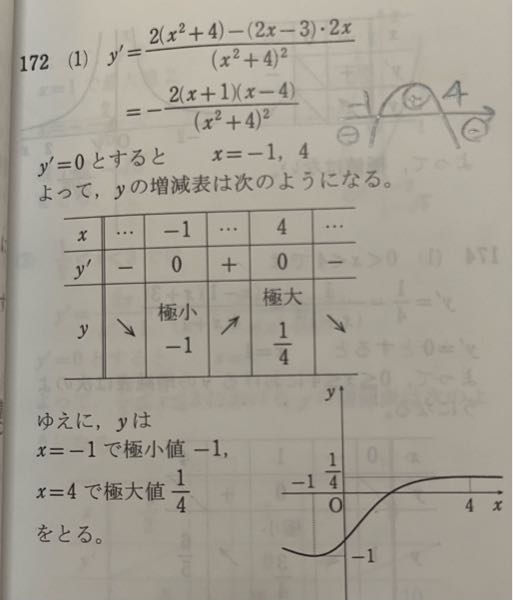 172 (1) y′=\frac{2(x²+4)−(2x−3)・2x}{(x²+4)²}
=−\frac{2(x+1)(x−4)}{(x²+4)²}
−1 ⊕ 4
⊖ ⊖
y′=0とすると x=−1, 4
よって，yの増減表は次のようになる。
x … −1 … 4 …
y′ − 0 + 0 −
極小 極大
y ↘ −1 ↗ \frac{1}{4} ↘
ゆえに，yは
x=−1で極小値 −1,
x=4で極大値 \frac{1}{4}
をとる。
y
\frac{1}{4}
−1 O 4 x
−1